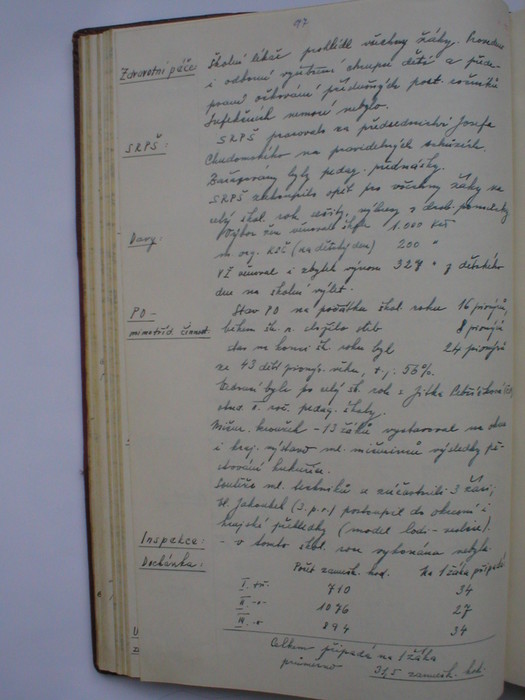 97
Zdravotní péče školní lékař prohlédl všechny žáky. Provedeno
i odborné vyšetření chrupu dětí a pře-
povin. očkování příslušných post. ročníků
Infekčních nemocí nebylo.
SRPŠ: SRPŠ pracovalo za předsednictví Josefa
na pravidelných schůzích.
byly pedag. přednášky.
SRPŠ zakoupilo opět pro všechny žáky na
celý škol. rok sešity, výkresy a drob. pomůcky
Dary: Výbor žen věnoval škole 1.000 Kčs
m. org. KSČ (na dětský den) 200 "
VŽ věnoval i zbytek výnosu 327 " z dětského
dne na školní výlet.
PO - Stav PO na počátku škol. roku 16 pionýrů
mimotříd. činnost. během šk. r. složilo slib 8 pionýrů
stav na konci šk. roku byl 24 pionýrů
ze 43 dětí pionýr. věku, t.j. 56%.
Vedoucí byla po celý šk. rok s. Jitka
stud. II. roč. pedag. školy.
Mičur. kroužek - 13 žáků vystavoval na okr.
i kraj. výstavě ml. mičurinců výsledky pě-
stování kukuřice.
Soutěže ml. techniků se zúčastnili 3 žáci,
postoupil do okresní i
krajské přehlídky (model lodi - ).
Inspekce: - v tomto škol. roce vykonána nebyla.
Docházka: Počet zamešk. hod. Na 1 žáka připadá
I. tř. 710 34
II. -"- 1076 27
III. -"- 894 34
Celkem připadá na 1 žáka
průměrně 31,5 zamešk. hod.